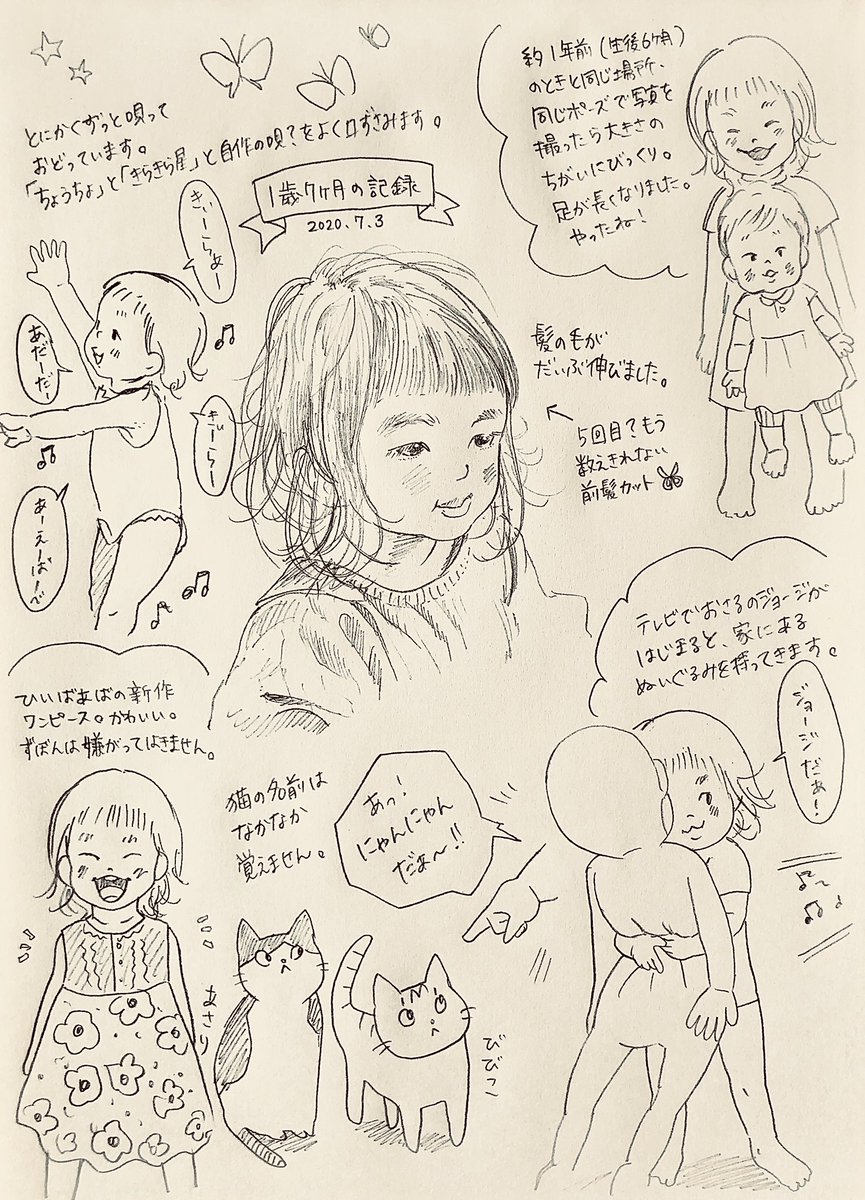 とにかくずっと唄って
おどっています。
「ちょうちょ」と「きらきら星」と自作の唄?をよく口ずさみます。
1歳7ヶ月の記録
2020.7.3
約1年前(生後6ヶ月)
のときと同じ場所、
同じポーズで写真を
撮ったら大きさの
ちがいにびっくり。
足が長くなりました。
やったね!
きぃーらぁー
あだーだー
きぃーらー
あーえーばーで
髪の毛が
だいぶ伸びました。
5回目?もう
数えきれない
前髪カット
テレビでおさるのジョージが
はじまると、家にある
ぬいぐるみを持ってきます。
ジョージだぁ!
ひいばあばの新作
ワンピース。かわいい。
ずぼんは嫌がってはきません。
猫の名前は
なかなか
覚えません。
あっ!
にゃんにゃん
だぁ〜!!
あさり
びびこ